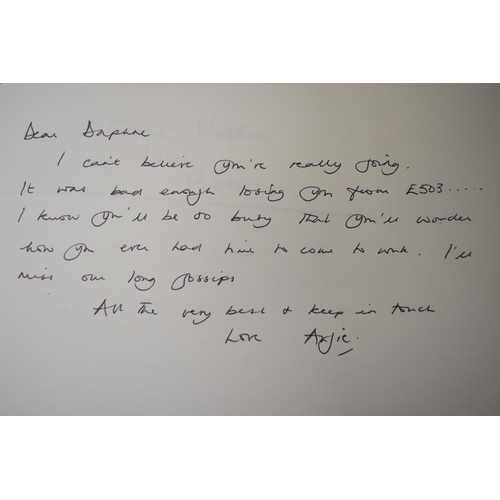 Dear Daphne
I can't believe you're really going.
It was bad enough losing you from E503.....
I know you'll be so busy that you'll wonder
how you ever had time to come to work. I'll
miss our long gossips
All the very best & keep in touch
Love Angie.